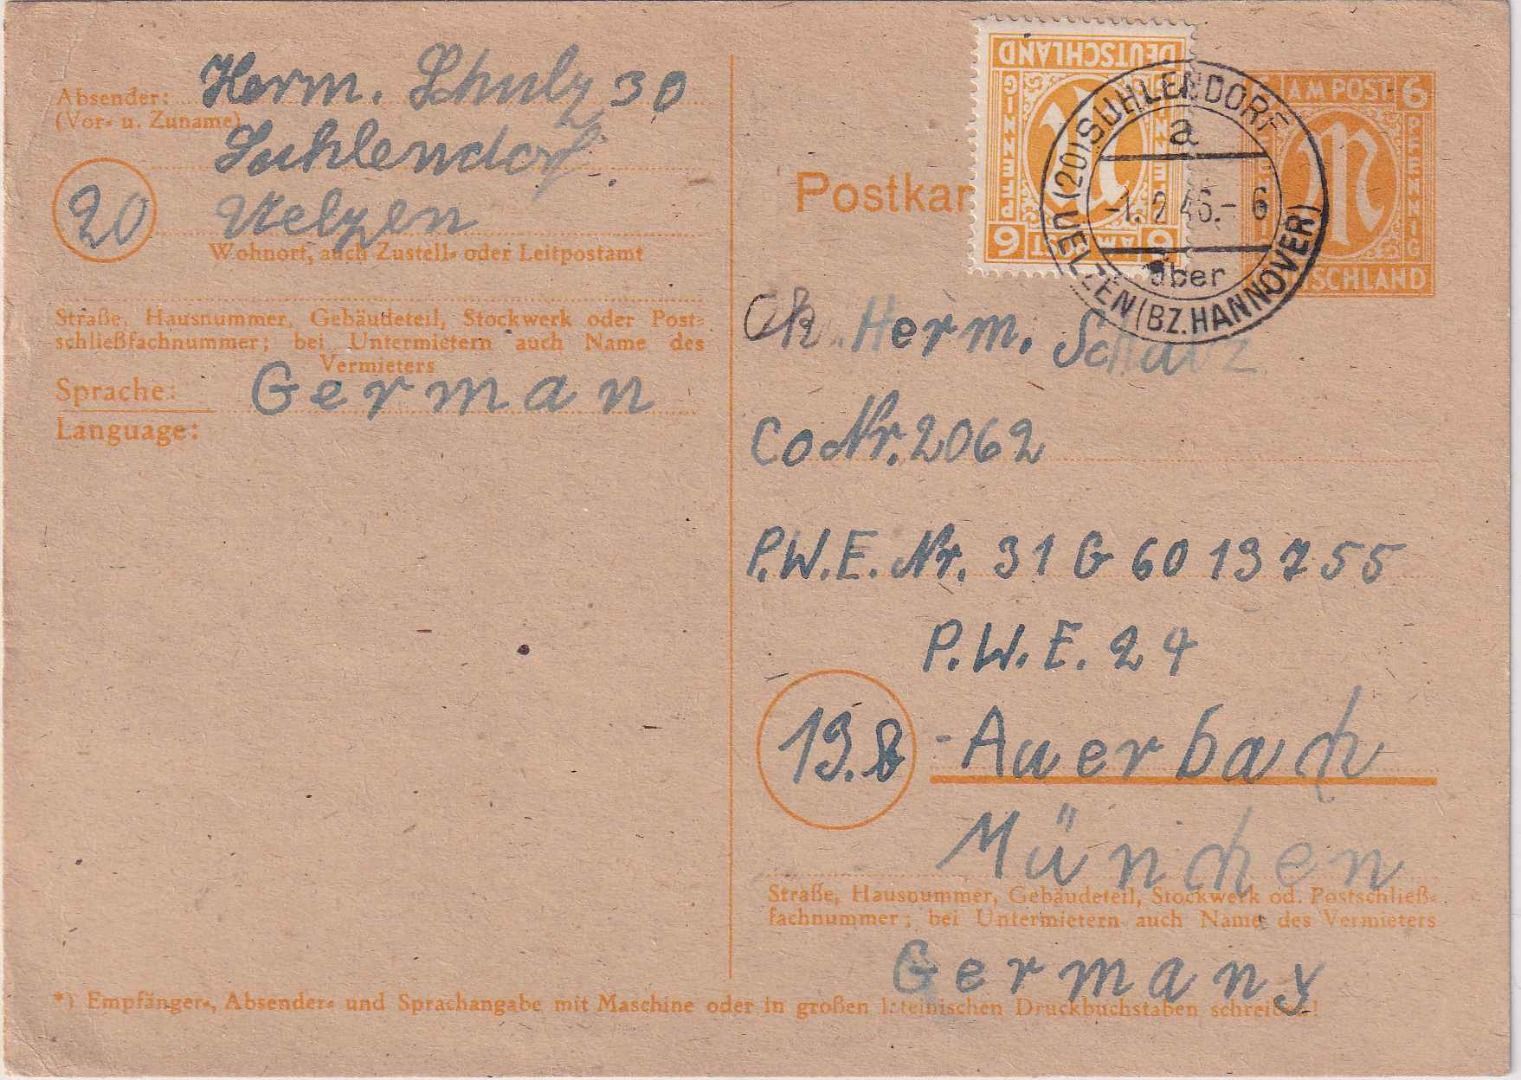 Absender:
(Vor- u. Zuname)
Herm. Schulz 30
Suhlendorf.
20
Uelzen
Wohnort, auch Zustell- oder Leitpostamt
Straße, Hausnummer, Gebäudeteil, Stockwerk oder Post-
schließfachnummer; bei Untermietern auch Name des
Vermieters
Sprache:
German
Language:
Postkar
DEUTSCHLAND
PFENNIG
6 AM POST 6
PFENNIG
AM POST 6
PFENNIG
SCHLAND
(20) SUHLENDORF
a
-1. 2 46.- 6
über
UELZEN (BZ. HANNOVER)
Herm. Schulz
Co Nr. 2062
P.W.E. Nr. 31 G 60 13 755
P.W.E. 24
13.b
-Auerbach
München
Straße, Hausnummer, Gebäudeteil, Stockwerk od. Postschließ-
fachnummer; bei Untermietern auch Name des Vermieters
Germany
*) Empfänger-, Absender- und Sprachangabe mit Maschine oder in großen lateinischen Druckbuchstaben schreiben!